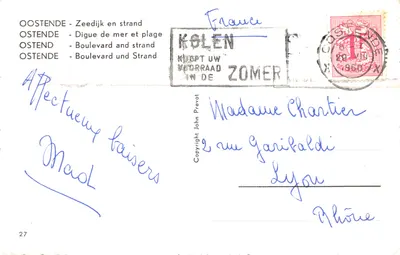 OOSTENDE - Zeedijk en strand
OSTENDE - Digue de mer et plage
OSTEND - Boulevard and strand
OSTENDE - Boulevard und Strand
France
KOLEN
KOOPT UW
VOORRAAD
IN DE
ZOMER
OOSTENDE
1960
Affectueux baisers
Mad
Madame Chartier
2 rue Garibaldi
Lyon
Rhône
Copyright John Prevot
27